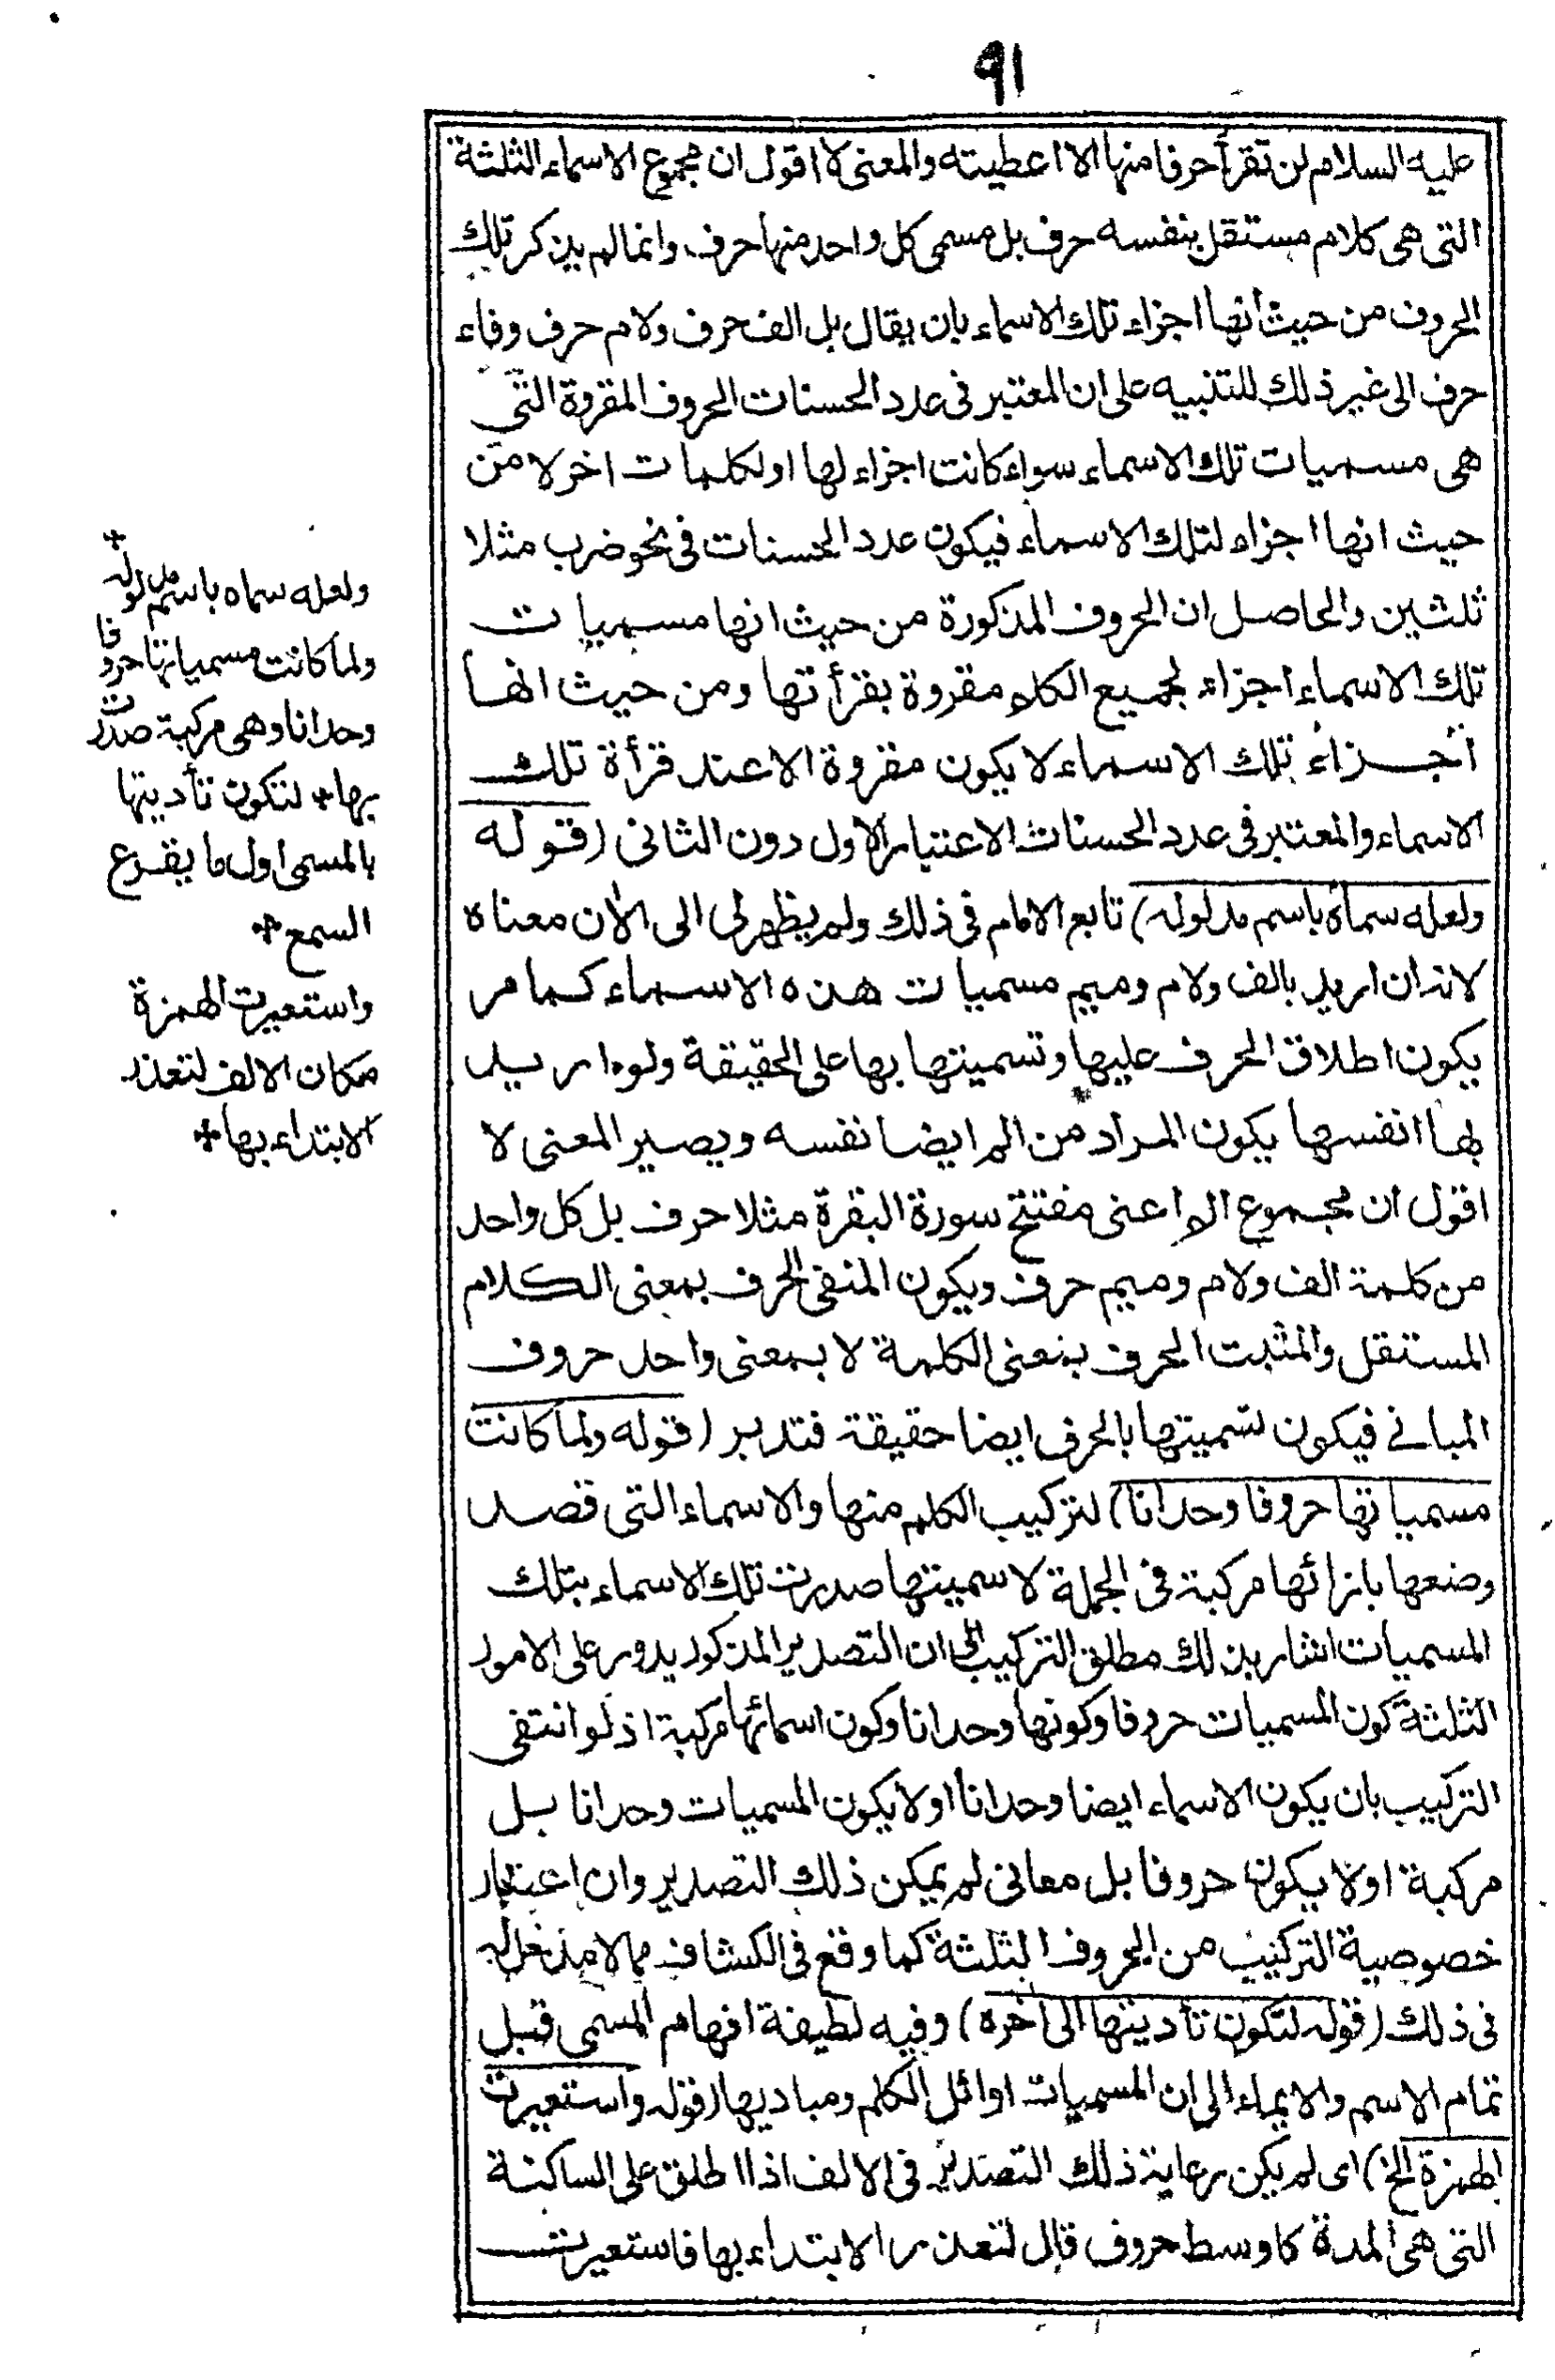 ٩١
عليه السلام لن تقرأ حرفا منها الا اعطيته والمعنى لا اقول ان مجموع الاسماء الثلثة
التى هى كلام مستقل بنفسه حرف بل مسمى كل واحد منها حرف وانما لم يذكر تلك
الحروف من حيث انها اجزاء تلك الاسماء بان يقال بل الف حرف ولام حرف وفاء
حرف الى غير ذلك للتنبيه على ان المعتبر فى عدد الحسنات الحروف المقروة التى
هى مسميات تلك الاسماء سواء كانت اجزاء لها او لكلمات اخر لا من
حيث انها اجزاء لتلك الاسماء فيكون عدد الحسنات فى نحو ضرب مثلا
ثلثين والحاصل ان الحروف المذكورة من حيث انها مسميات
تلك الاسماء اجزاء لجميع الكلم مقروة بقرأتها ومن حيث انها
أجزاء تلك الاسماء لا يكون مقروة الا عند قرأة تلك
الاسماء والمعتبر فى عدد الحسنات الاعتبار الاول دون الثانى (قوله
ولعله سماه باسم مدلوله) تابع الامام فى ذلك ولم يظهر لى الى الان معناه
لانه ان اريد بالف ولام وميم مسميات هذه الاسماء كما مر
يكون اطلاق الحرف عليها وتسميتها بها على الحقيقة ولو اريد
بها انفسها يكون المراد من الم ايضا نفسه ويصير المعنى لا
اقول ان مجموع الم اعنى مفتتح سورة البقرة مثلا حرف بل كل واحد
من كلمة الف ولام وميم حرف ويكون المنفى الحرف بمعنى الكلام
المستقل والمثبت الحرف بمعنى الكلمة لا بمعنى واحد حروف
المبانے فيكون تسميتها بالحرف ايضا حقيقة فتدبر (قوله ولما كانت
مسمياتها حروفا وحدانا) لتركيب الكلم منها والاسماء التى قصد
وضعها بازائها مركبة فى الجملة لاسميتها صدرت تلك الاسماء بتلك
المسميات اشار بذلك مطلق التركيب الى ان التصدير المذكور يدور على الامور
الثلثة كون المسميات حروفا وكونها وحدانا وكون اسمائها مركبة اذ لو انتفى
التركيب بان يكون الاسماء ايضا وحدانا او لا يكون المسميات وحدانا بل
مركبة اولا يكون حروفا بل معانى لم يمكن ذلك التصدير وان اعتبار
خصوصية التركيب من الحروف الثلثة كما وقع فى الكشاف مما لا مدخل له
فى ذلك (قوله لتكون تأديتها الى اخره) وفيه لطيفة افهام المسمى قبل
تمام الاسم والايماء الى ان المسميات اوائل الكلم ومباديها (قوله واستعيرت
الهمزة الخ) اى لم يكن رعاية ذلك التصدير فى الالف اذا اطلق على الساكنة
التى هى المدة كاوسط حروف قال لتعذر الابتداء بها فاستعيرت
ولعله سماه باسم مدلوله
ولما كانت مسمياتها حروفا
وحدانا وهى مركبة صدرت
بها لتكون تأديتها
بالمسمى اول ما يقرع
السمع
واستعيرت الهمزة
مكان الالف لتعذر
الابتداء بها